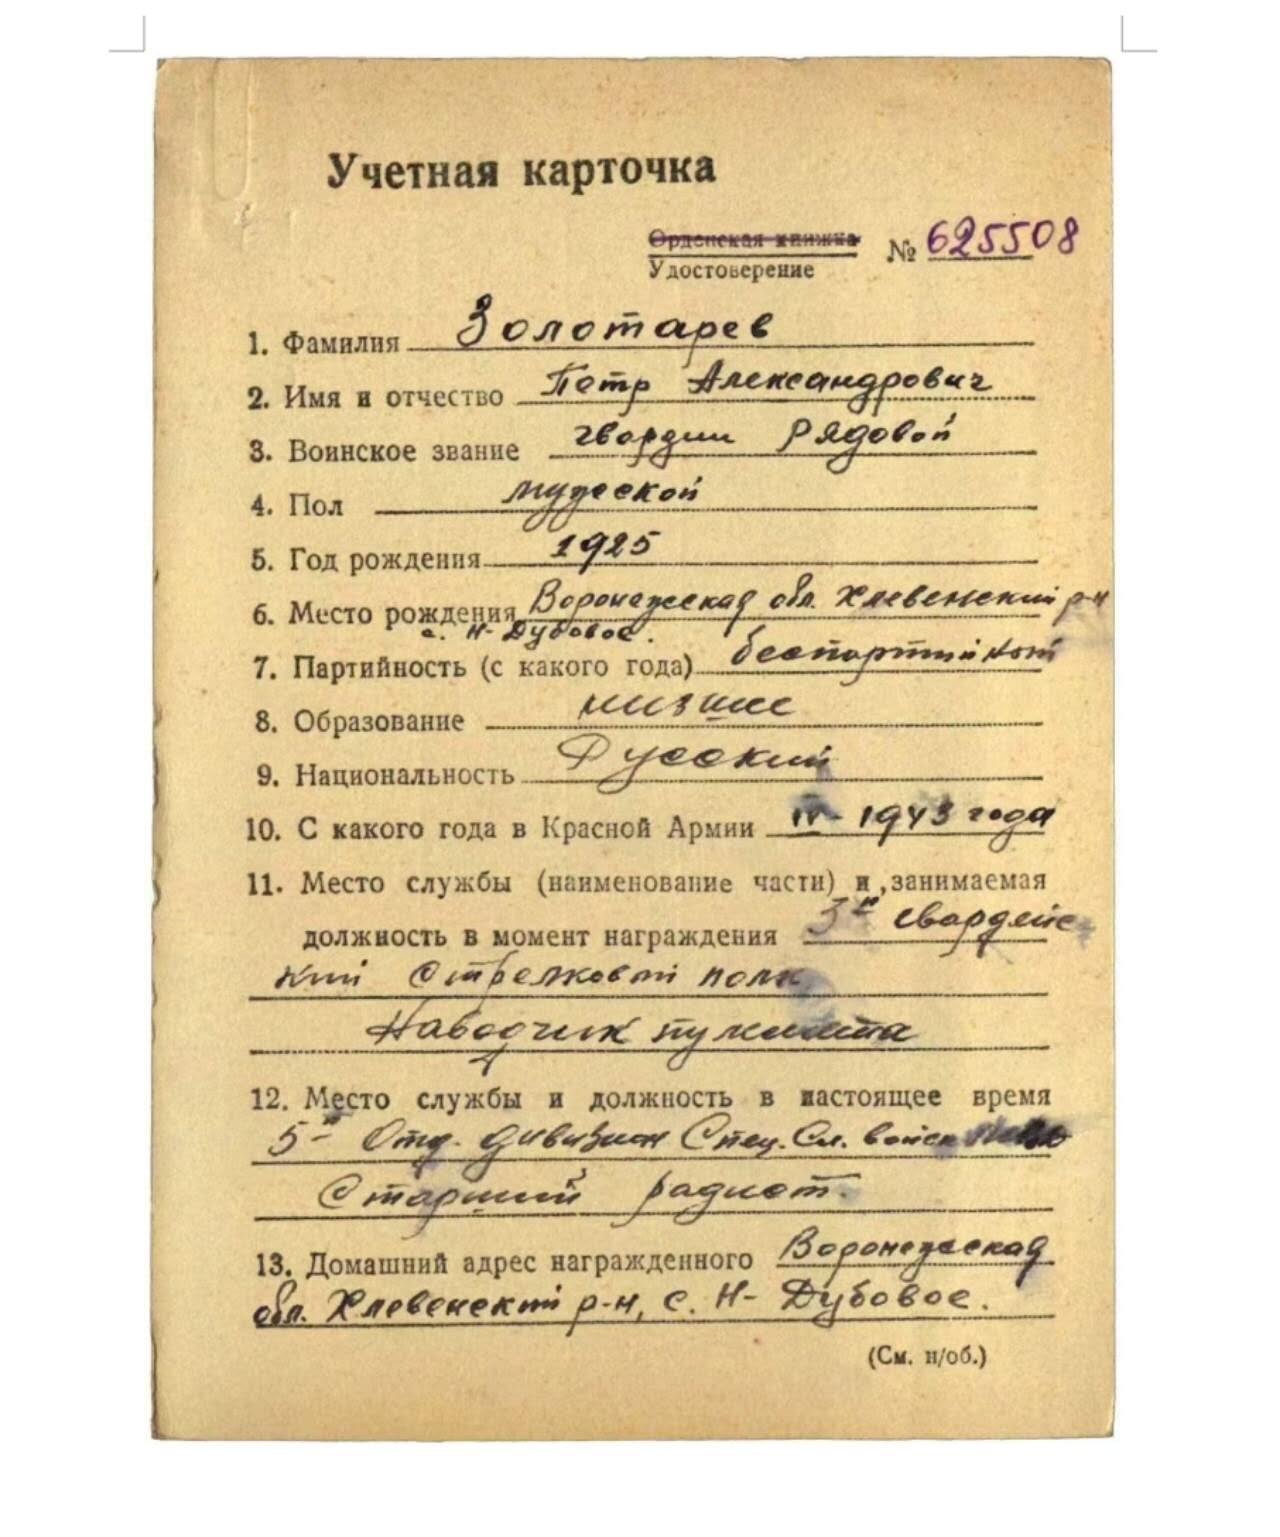 Учетная карточка
Орденская книжка
Удостоверение
№ 625508
1. Фамилия Золотарев
2. Имя и отчество Петр Александрович
3. Воинское звание гвардии Рядовой
4. Пол мужской
5. Год рождения 1925
6. Место рождения Воронежская обл. Хлевенский р-н
с. Н-Дубовое.
7. Партийность (с какого года) беспартийный
8. Образование низшее
9. Национальность Русский
10. С какого года в Красной Армии 1943 года
11. Место службы (наименование части) и занимаемая
должность в момент награждения 3й гвардейс-
кий Стрелковый полк
Наводчик пулемета
12. Место службы и должность в настоящее время
5й Отд. дивизион Спец. Сл. войск
Старший радист.
13. Домашний адрес награжденного Воронежская
обл. Хлевенский р-н, с. Н-Дубовое.
(См. н/об.)